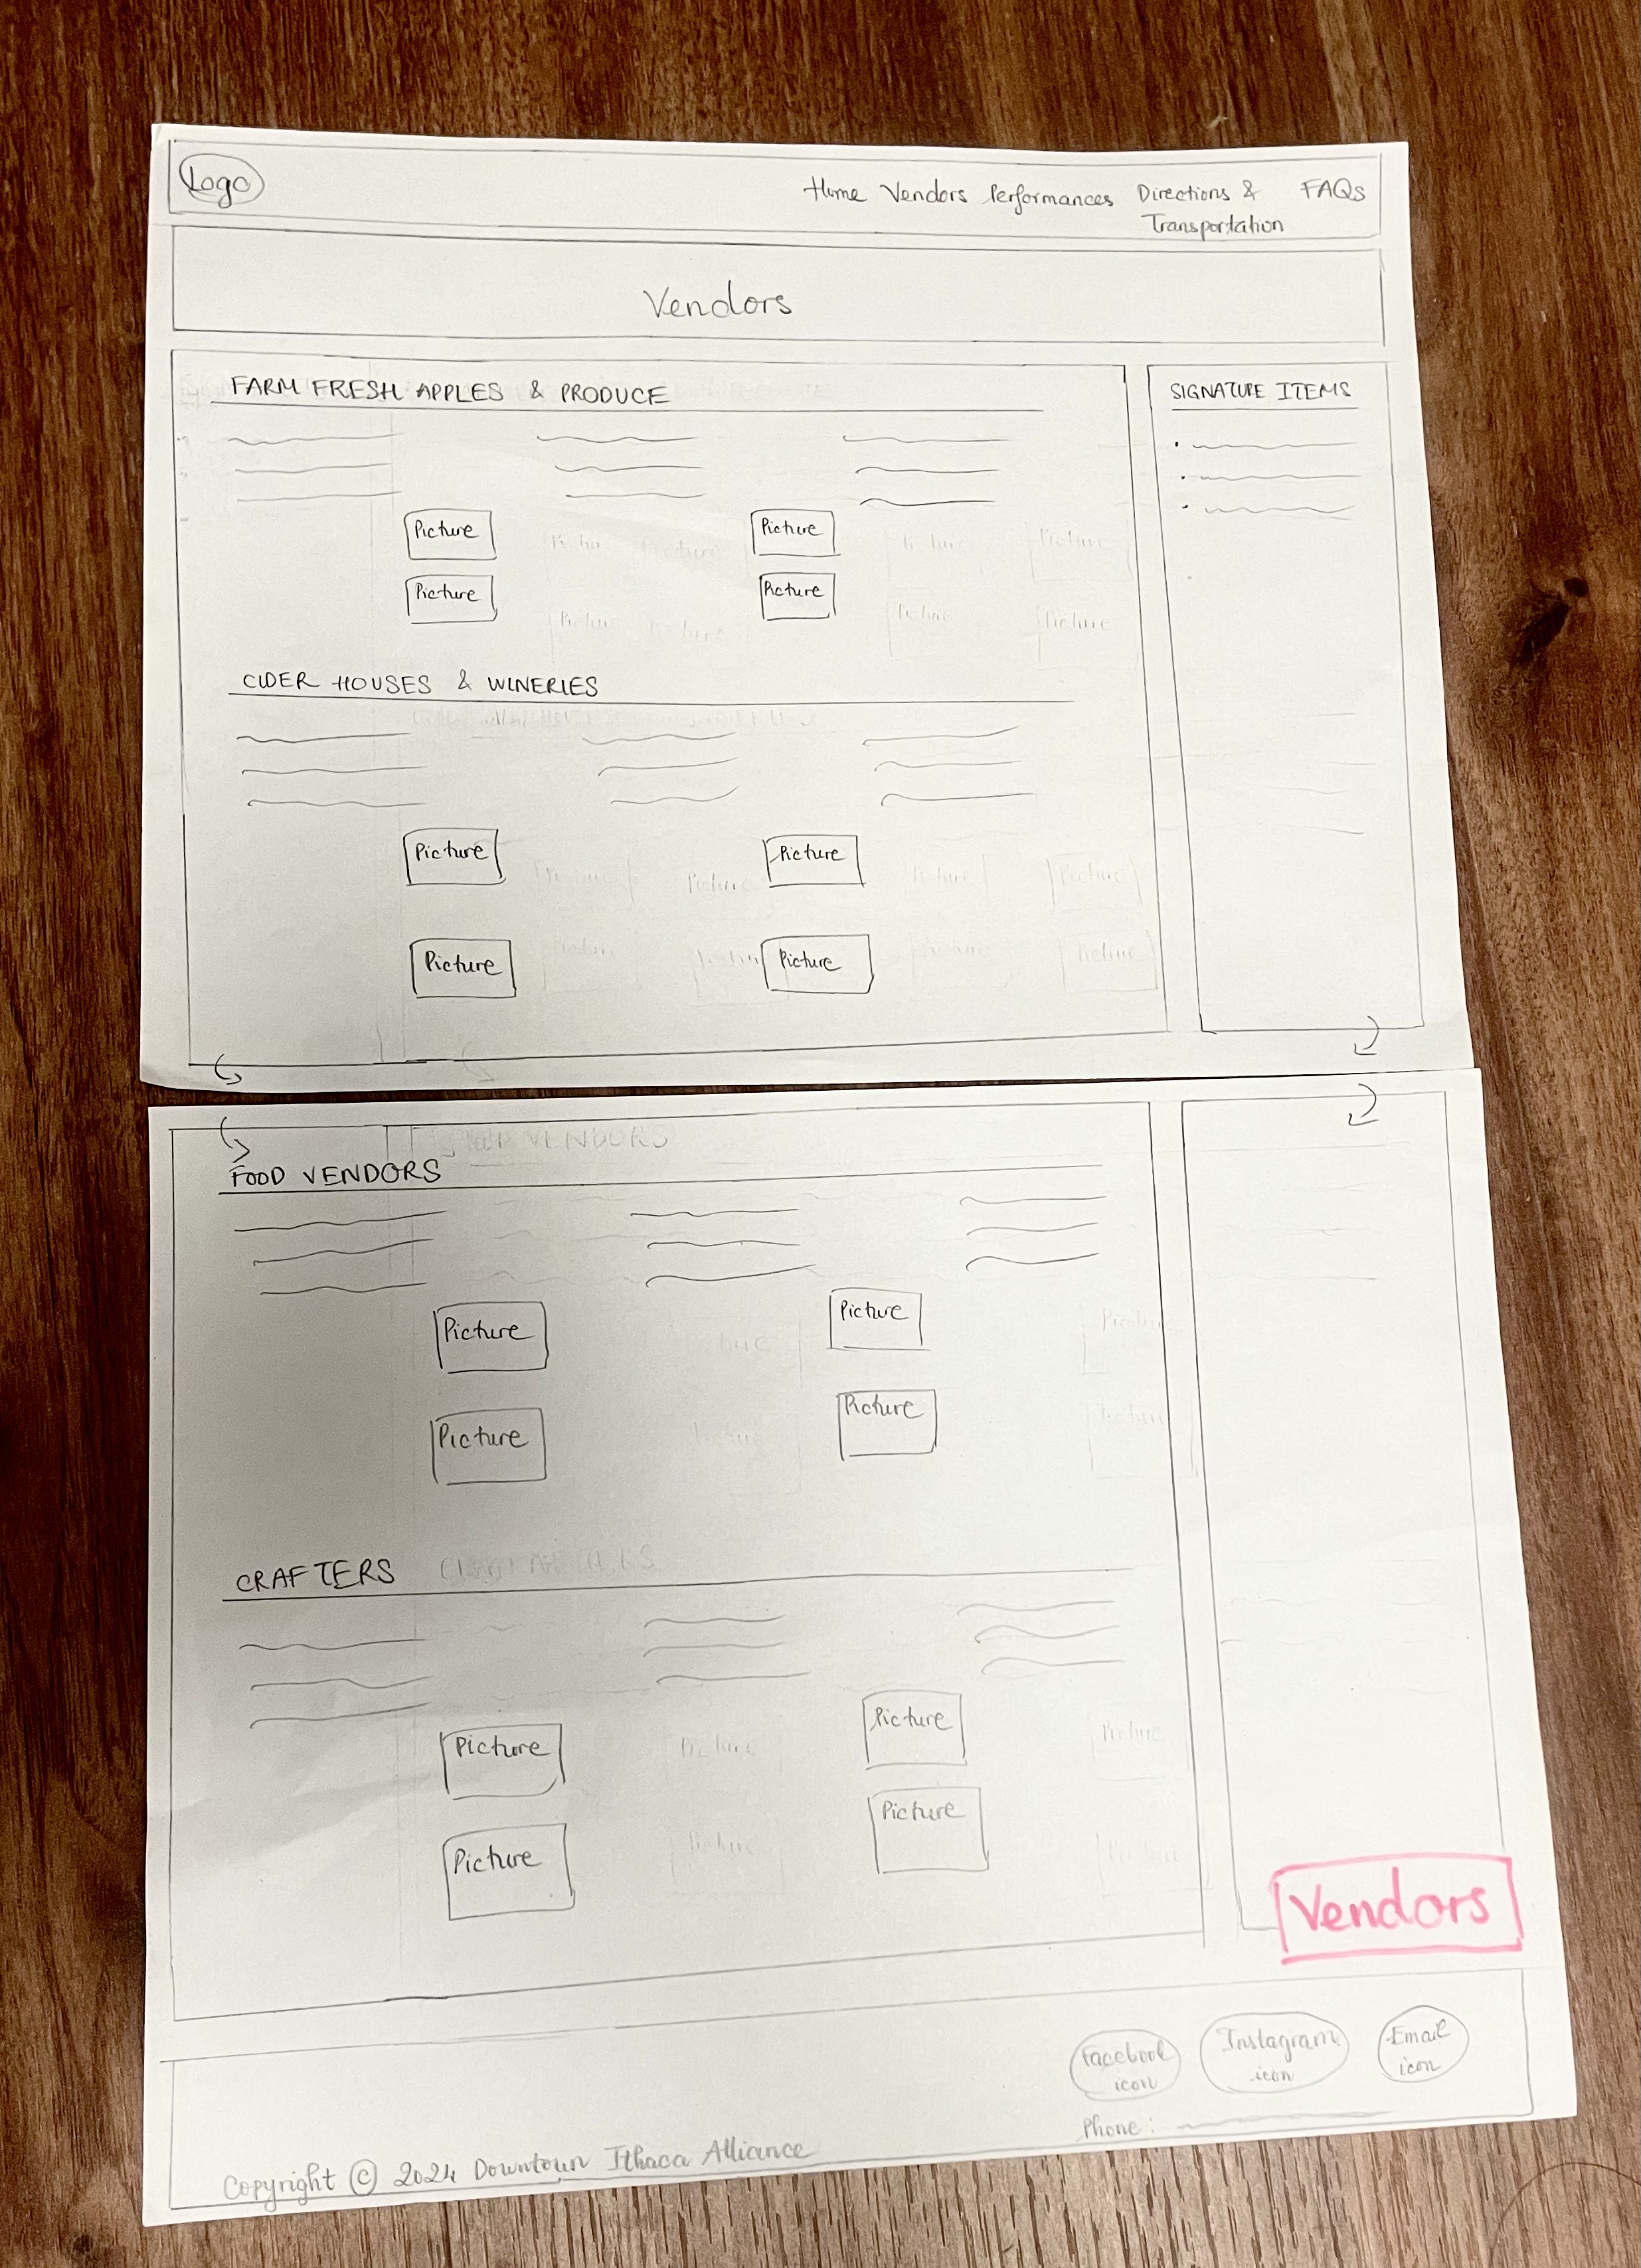 Logo
Home Vendors Performances Directions & Transportation FAQs
Vendors
FARM FRESH APPLES & PRODUCE
SIGNATURE ITEMS
Picture Picture
Picture Picture
CIDER HOUSES & WINERIES
Picture Picture
Picture Picture
FOOD VENDORS
Picture Picture
Picture Picture
CRAFTERS
Picture Picture
Picture Picture
Vendors
Facebook icon
Instagram icon
Email icon
Phone:
Copyright © 2024 Downtown Ithaca Alliance